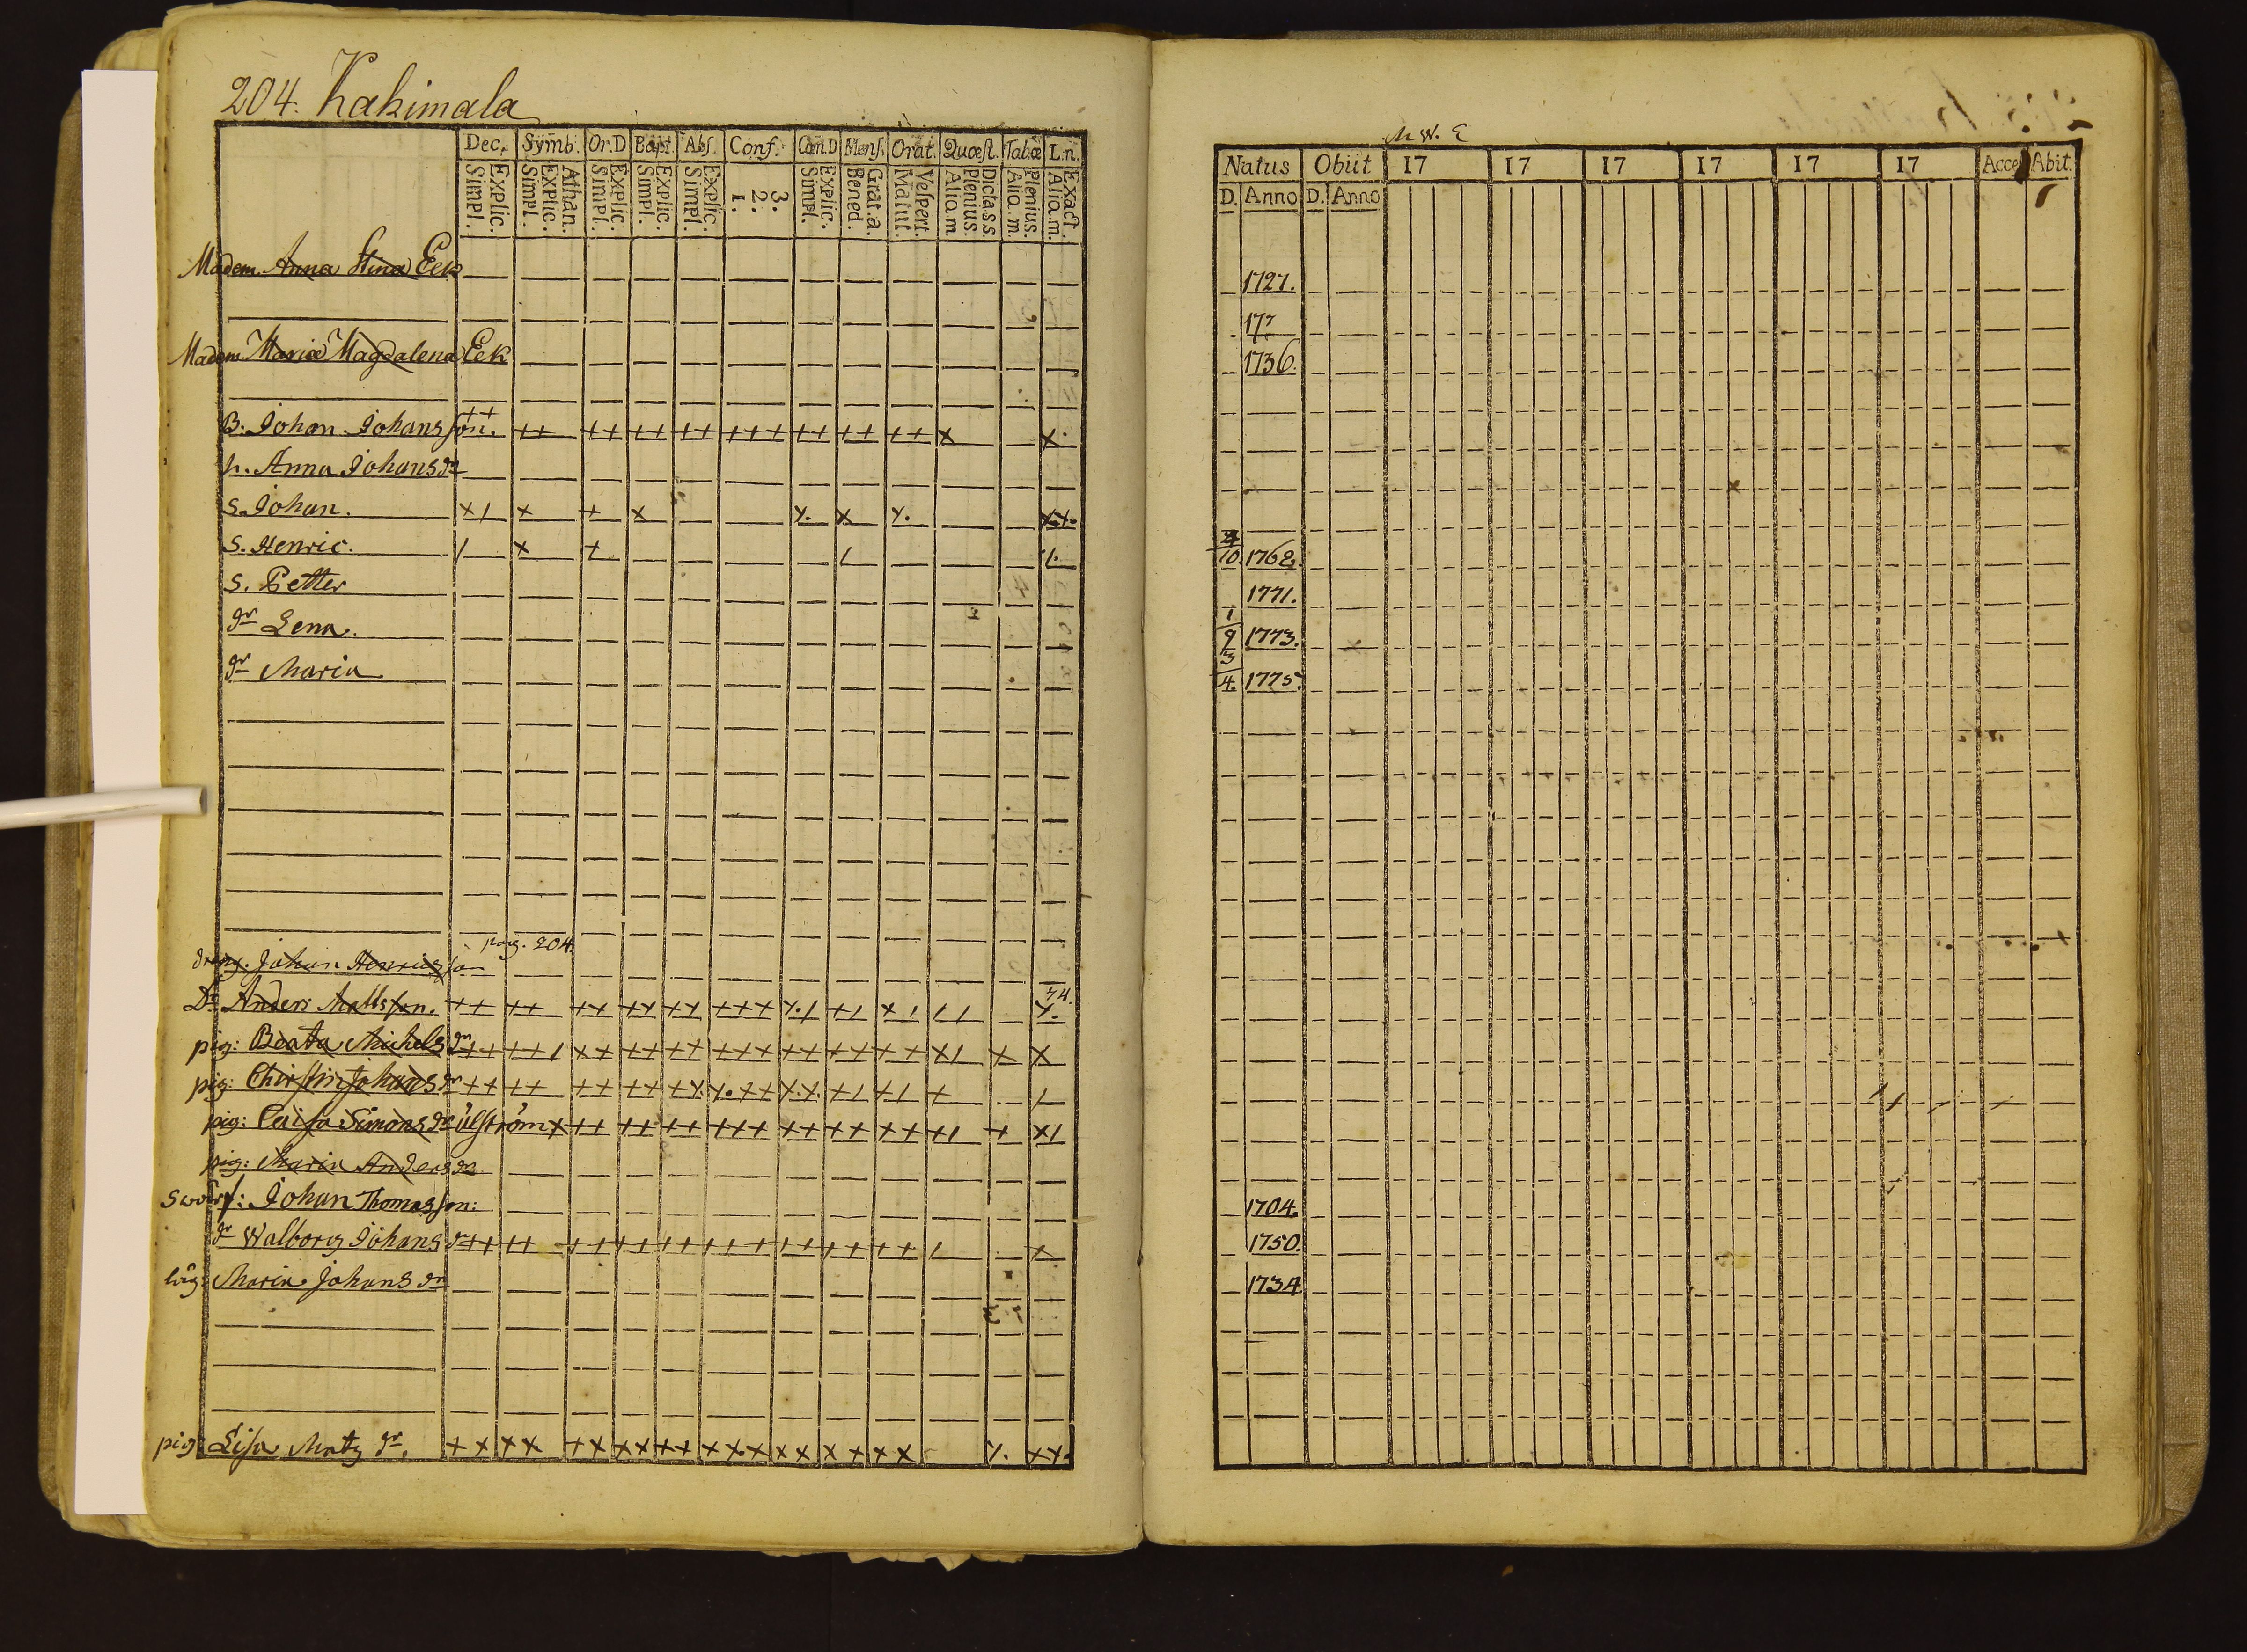 204. Kakimala
Dec. Symb. Or.D Bapt. Abs. Conf. Cœn.D Mens. Orat. Quæst. Tabæ L.n.
Explic. Simpl. Athan. Explic. Simpl. Explic. Simpl. Explic. Simpl. Explic. Simpl. 3. 2. 1. Explic. Simpl. Grat.a. Bened. Vespert. Matut. Dicta.s.s. Plenius. Alio.m. Plenius. Alio.m. Exact. Alio.m.
Madem Anna Stina Eek
Madem Maria Magdalena Eek
B. Johan Johansson. ++ ++ ++ ++ ++ +++ ++ ++ ++ x x
h. Anna Johansdr
S. Johan. x/ x + x
S. Henric. / x +
S. Petter
dr Lena.
dr Maria
pag. 204.
dräng. Johan Henricsson
Dr Anders Mattsson.
pig: Beata Michelsdr
pig: Chirstin Johansdr
pig: Caisa Simonsdr Ulström
pig: Maria Andersdr
Swärf: Johan Thomasson:
dr Walborg Johansdr
Maria Johansdr
pig: Lisa Matzdr.
M W. E
Natus Obiit 17 17 17 17 17 17 Acce Abit.
D. Anno D. Anno
1727.
17
1736.
10. 1762.
1771.
1/9 1773.
3/4. 1775.
1704
1750.
1734